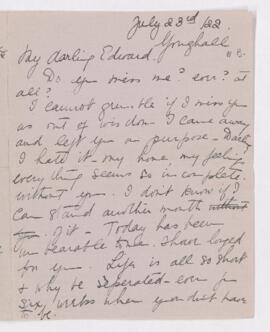 July 23rd /22.
Youghall
My darling Edward
Do you miss me? ever? at
all?
I cannot grumble if I miss you
as out of wisdom I came away
and left you on purpose - Darling
I hate it - my home, my feelings
everything seems so incomplete
without you. I don't know if I
can stand another month without
of it - Today has been
unbearable time. I have longed
for you. Life is all so short
& why be seperated - even for
six weeks when you dont have
to be.